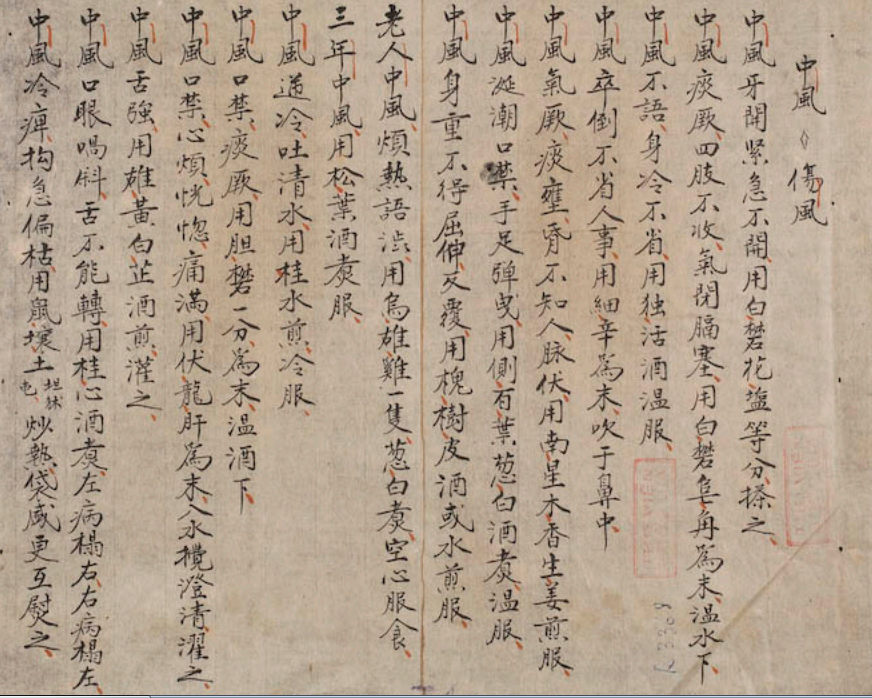 中風 ◊ 傷風
中風牙關緊急不開用白礬花塩等分搽之
中風痰厥四肢不收氣閉膈塞用白礬皂角為末温水下
中風不語身冷不省用独活酒温服
中風卒倒不省人事用細辛為末吹于鼻中
中風氣厥痰壅昏不知人脉伏用南星木香生姜煎服
中風涎潮口禁手足弹曳用側百葉葱白酒煮温服
中風身重不得屈伸反覆用槐樹皮酒或水煎服
老人中風煩熱語澁用烏雄雞一隻葱白煮空心服食
三年中風用松葉酒煮服
中風逆冷吐清水用桂水煎冷服
中風口禁痰厥用胆礬一分為末温酒下
中風口禁心煩恍惚痛满用伏龍肝為末入水攪澄清濯之
中風舌強用雄黃白芷酒煎灌之
中風口眼喎斜舌不能轉用桂心酒煮左病榻右右病榻左
中風冷痺拘急偏枯用鼠壤土 炒熱袋咸更互熨之
K3369